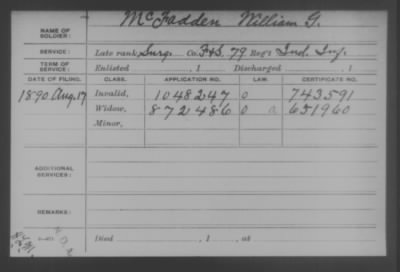 McFadden William G.
NAME OF SOLDIER:
SERVICE: Late rank, Surg. Co. F&S. 79 Reg't Ind. Inf.
TERM OF SERVICE: Enlisted , 1 Discharged , 1
DATE OF FILING. CLASS. APPLICATION NO. LAW. CERTIFICATE NO.
1890 Aug. 17 Invalid, 1048247 0 743591
Widow, 872486 0 a 651960
Minor,
ADDITIONAL SERVICES:
REMARKS:
Died , 1 , at